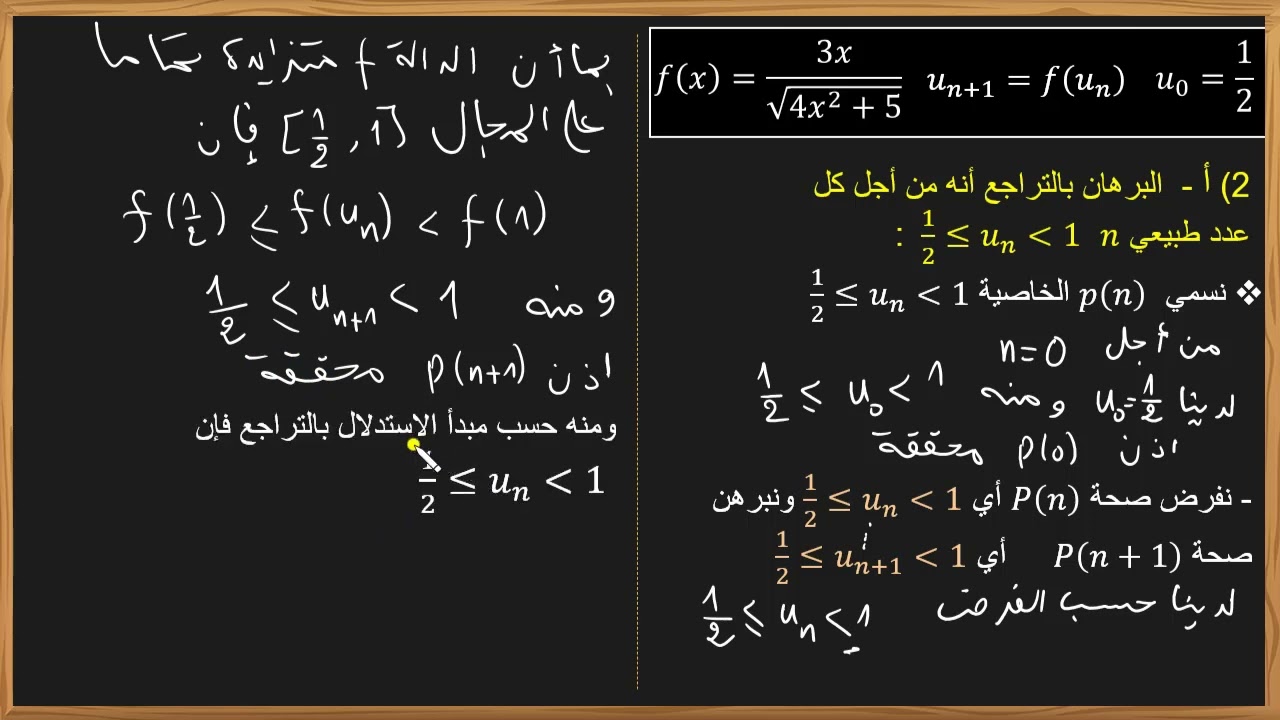 f(x) = 3x / √(4x² + 5)   uₙ₊₁ = f(uₙ)   u₀ = 1/2
2) أ - البرهان بالتراجع أنه من أجل كل
عدد طبيعي n  1/2 ≤ uₙ < 1 :
❖ نسمي p(n) الخاصية 1/2 ≤ uₙ < 1
من أجل n=0
لدينا u₀=1/2 ومنه 1/2 ≤ u₀ < 1
اذن p(0) محققة
- نفرض صحة P(n) أي 1/2 ≤ uₙ < 1 ونبرهن
صحة P(n + 1) أي 1/2 ≤ uₙ₊₁ < 1
لدينا حسب الفرض 1/2 ≤ uₙ < 1
بما أن الدالة f متزايدة تماما
على المجال [1/2 , 1] فإن
f(1/2) ≤ f(uₙ) < f(1)
ومنه 1/2 ≤ uₙ₊₁ < 1
اذن p(n+1) محققة
ومنه حسب مبدأ الاستدلال بالتراجع فإن
1/2 ≤ uₙ < 1